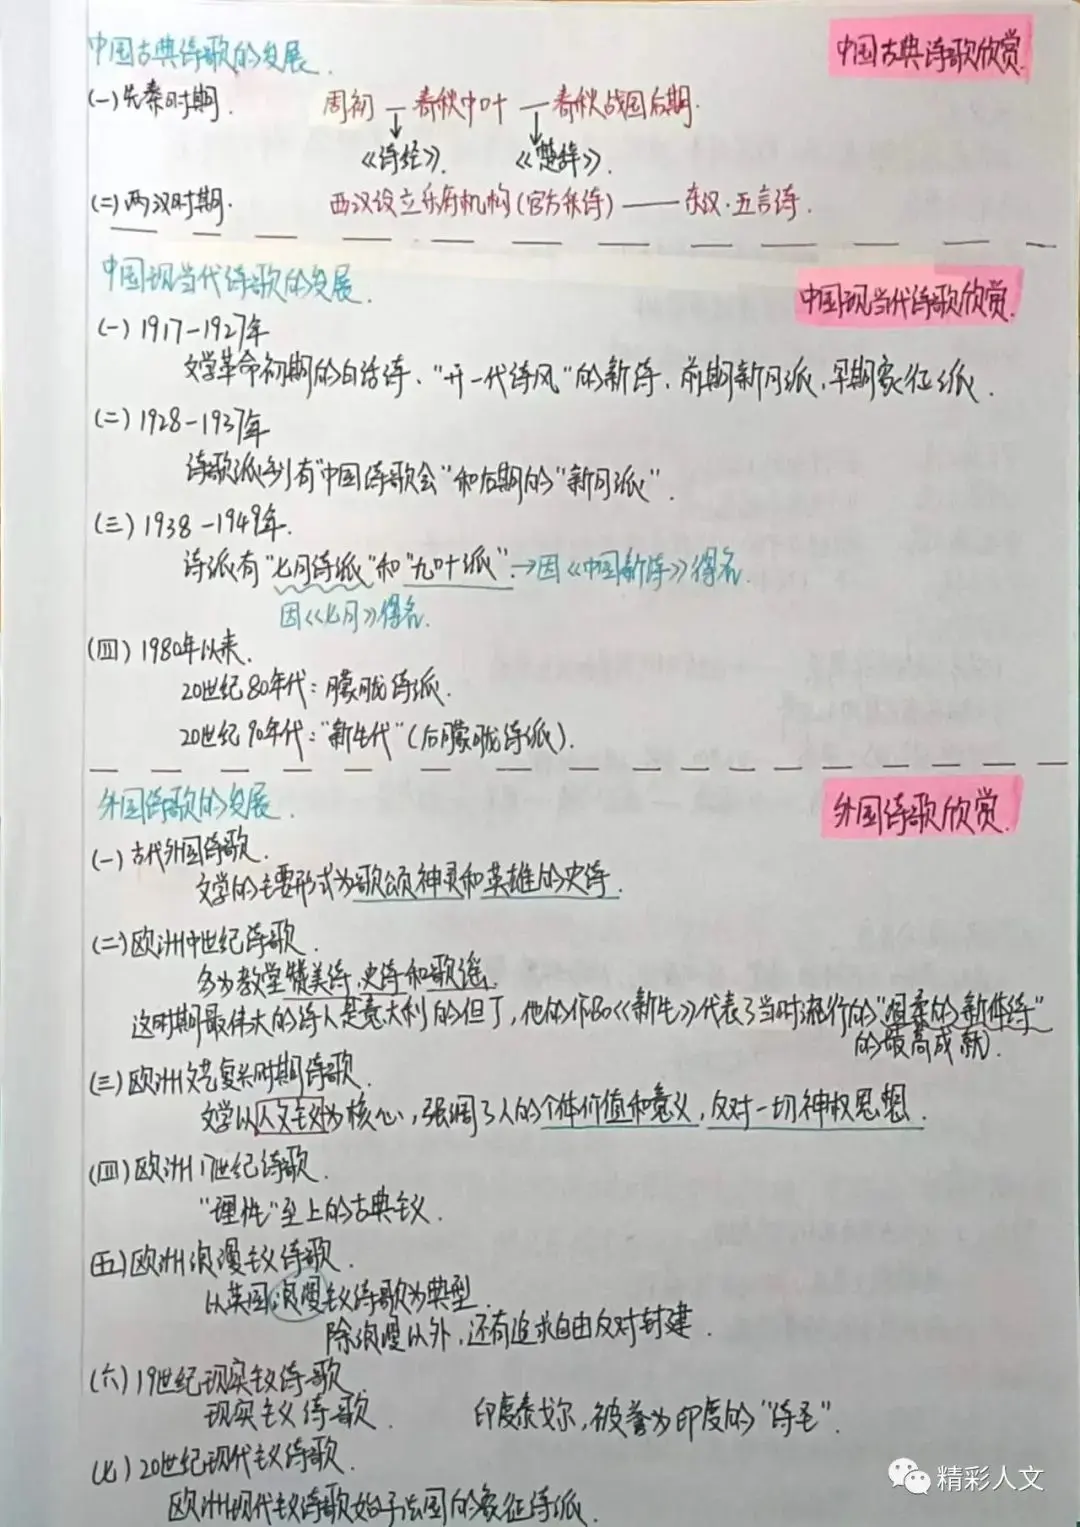 中国古典诗歌的发展.
中国古典诗歌欣赏.
(一)先秦时期. 周初 — 春秋中叶 — 春秋战国后期.
《诗经》. 《楚辞》.
(二)两汉时期. 西汉设立乐府机构(官方采诗) —— 东汉·五言诗.
中国现当代诗歌的发展.
中国现当代诗歌欣赏.
(一) 1917-1927年
文学革命初期的白话诗、"开一代诗风"的新诗、前期新月派、早期象征派.
(二) 1928-1937年
诗歌派别有"中国诗歌会"和后期的"新月派".
(三) 1938-1949年.
诗派有"七月诗派"和"九叶派".→因《中国新诗》得名.
因《七月》得名.
(四) 1980年以来.
20世纪80年代：朦胧诗派.
20世纪90年代："新生代"(后朦胧诗派).
外国诗歌的发展.
外国诗歌欣赏.
(一)古代外国诗歌.
文学的主要形式为歌颂神灵和英雄的史诗.
(二)欧洲中世纪诗歌.
多为教堂赞美诗、史诗和歌谣.
这时期最伟大的诗人是意大利的但丁，他的作品《新生》代表了当时流行的"温柔的新体诗"
的最高成就.
(三)欧洲文艺复兴时期诗歌.
文学以人文主义为核心，强调了人的个体价值和意义，反对一切神权思想.
(四)欧洲17世纪诗歌.
"理性"至上的古典主义.
(五)欧洲浪漫主义诗歌.
以英国浪漫主义诗歌为典型.
除浪漫以外，还有追求自由反对封建.
(六)19世纪现实主义诗歌.
现实主义诗歌. 印度泰戈尔，被誉为印度的"诗圣".
(七)20世纪现代主义诗歌.
欧洲现代主义诗歌始于法国的象征诗派.
精彩人文